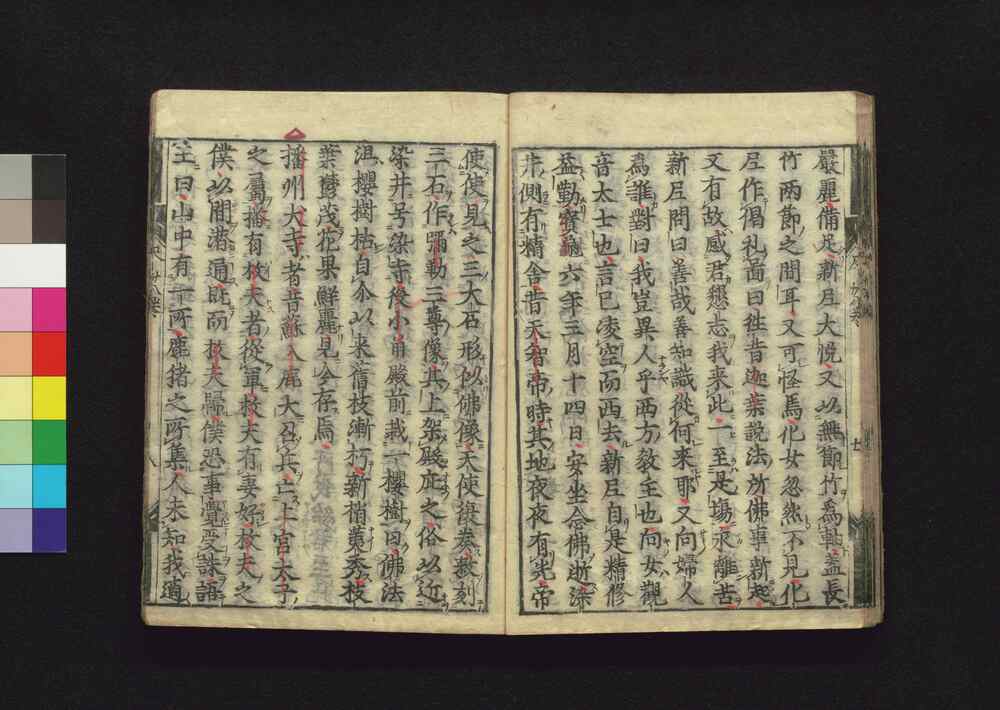 嚴麗備足新尼大悅又以無節竹爲軸蓋長
竹兩節之間耳又可怪焉化女忽然不見化
尼作偈礼面曰徃昔迦葉説法所佛事新起
又有故感君懇志我来此一至是場永離苦
新尼問曰善哉善知識從何来耶又向婦人
爲誰對曰我豈異人乎西方敎主也向女觀
音太士也言已凌空而西去新尼自是精修
益勤寳龜六年三月十四日安坐念佛逝染
井側有精舎昔天智帝時其地夜夜有光帝
使使見之三大石形似佛像天使復奏敕刻
三石作彌勒三尊像其上架殿庇之俗以近
染井号染寺役小角殿前栽一櫻樹曰佛法
沮櫻樹枯自尒以来舊枝漸朽新梢葉秀枝
葉鬱茂花果鮮麗見今存焉
播州犬寺者昔蘇入鹿大召兵亡上宮太子
之屬播有枚夫者從軍枚夫有妻好枚夫之
僕以間濳通既而枚夫歸僕恐事覺受誅語
主曰山中有一所鹿猪之所集人未知我適